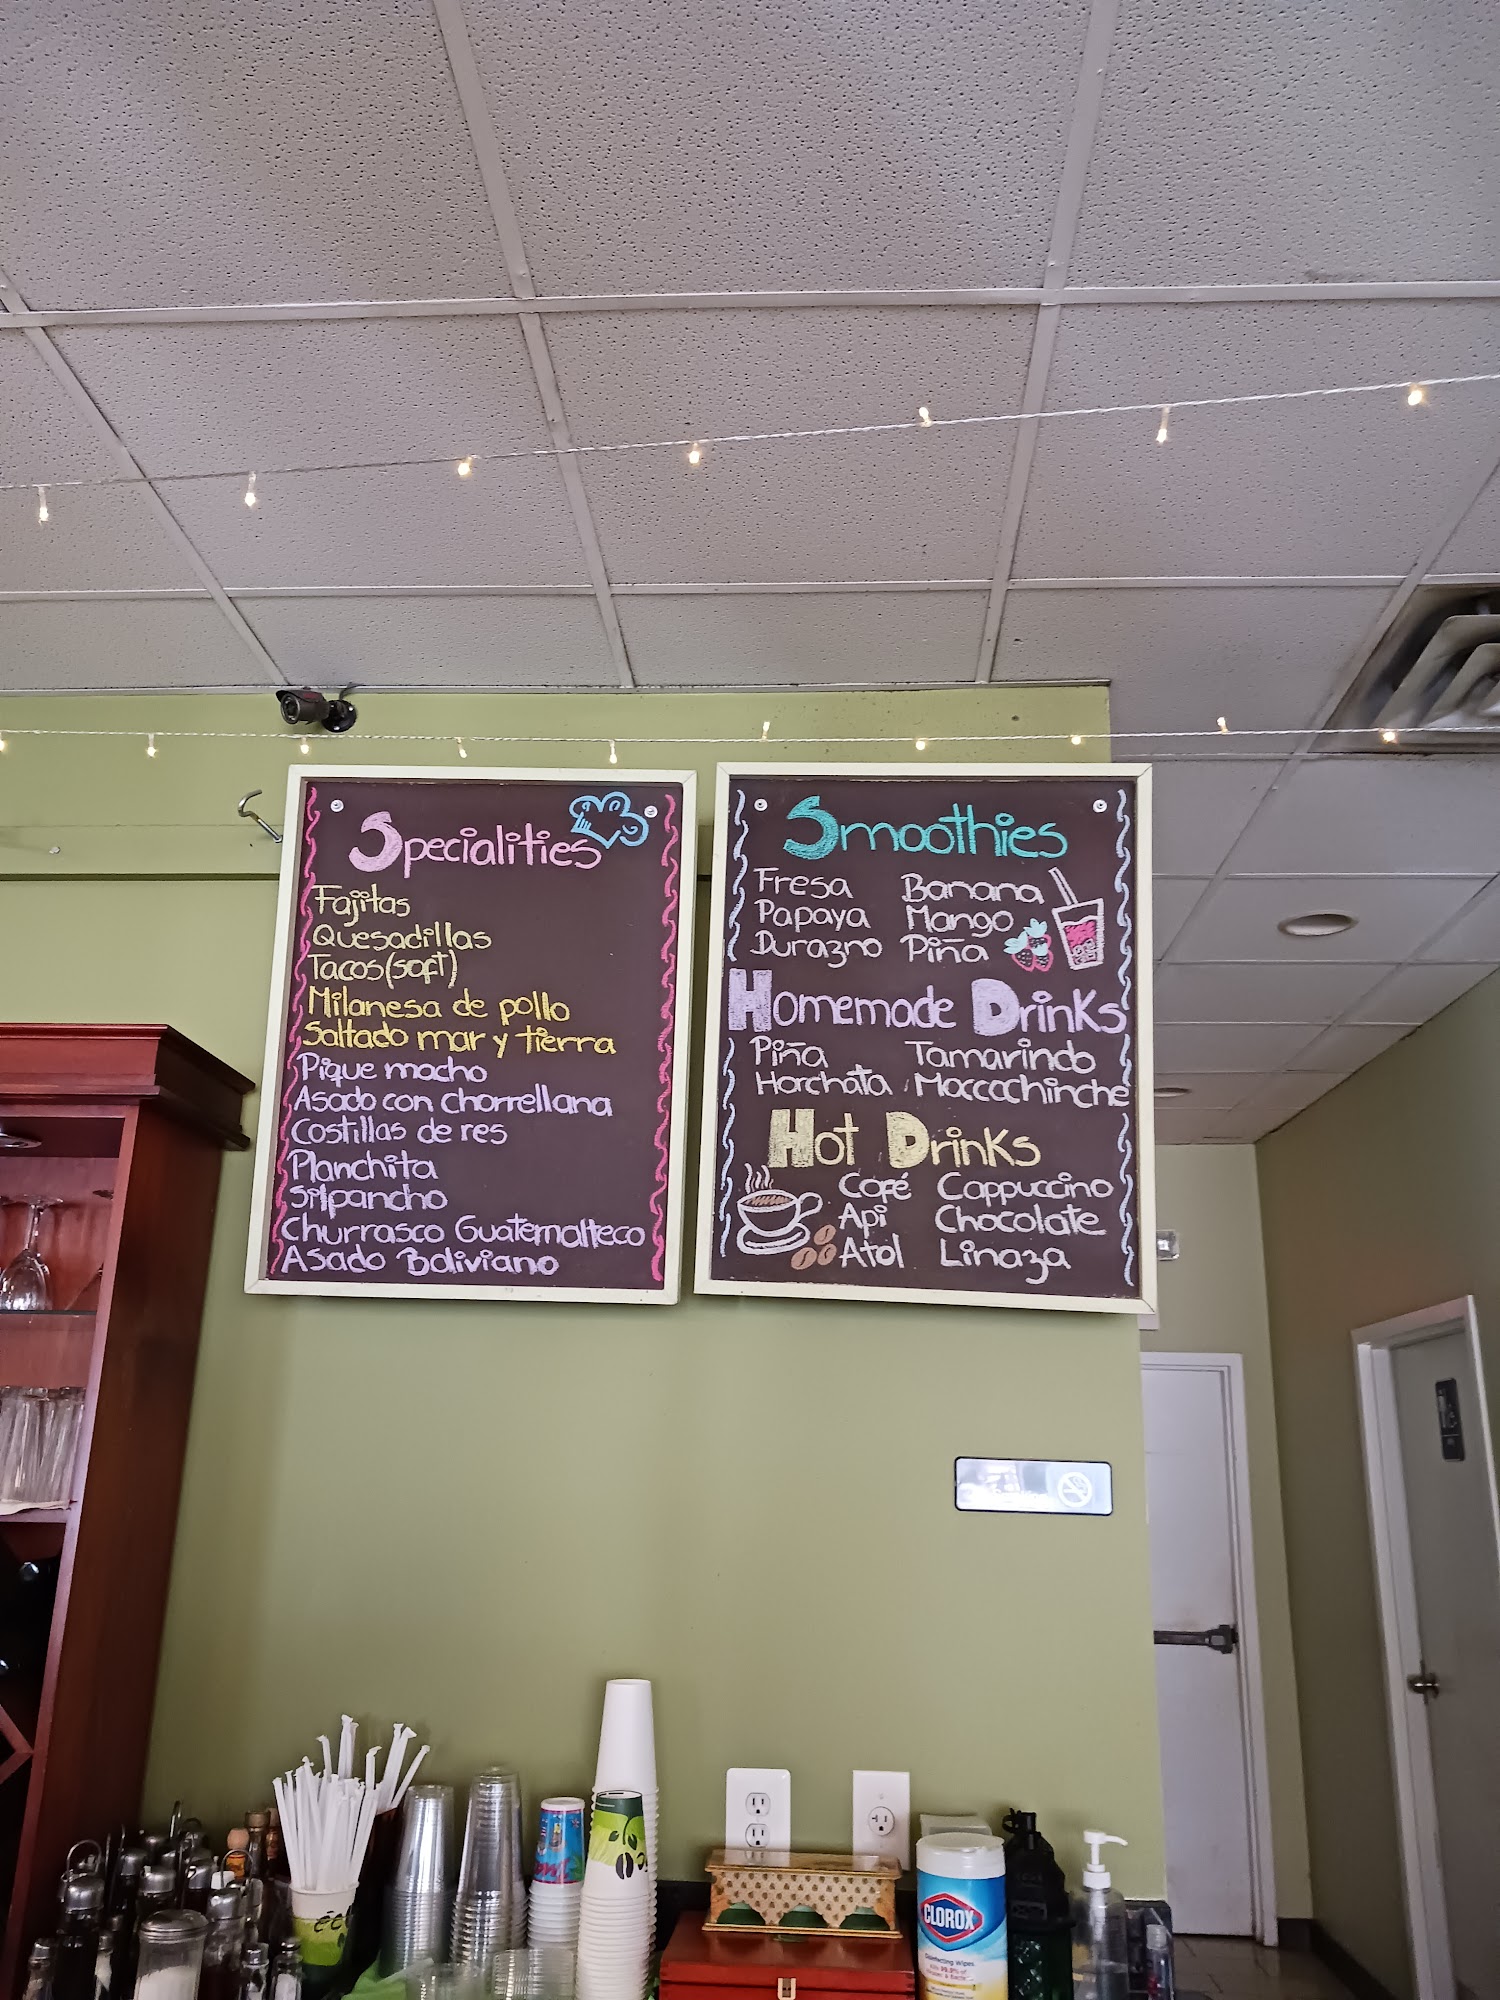 Specialities
Fajitas
Quesadillas
Tacos(soft)
Milanesa de pollo
Saltado mar y tierra
Pique macho
Asado con chorrellana
Costillas de res
Planchita
Silpancho
Churrasco Guatemalteco
Asado Boliviano
Smoothies
Fresa Banana
Papaya Mango
Durazno Piña
Homemade Drinks
Piña Tamarindo
Horchata Moccochinche
Hot Drinks
Café Cappuccino
Api Chocolate
Atol Linaza
CLOROX
Disinfecting Wipes